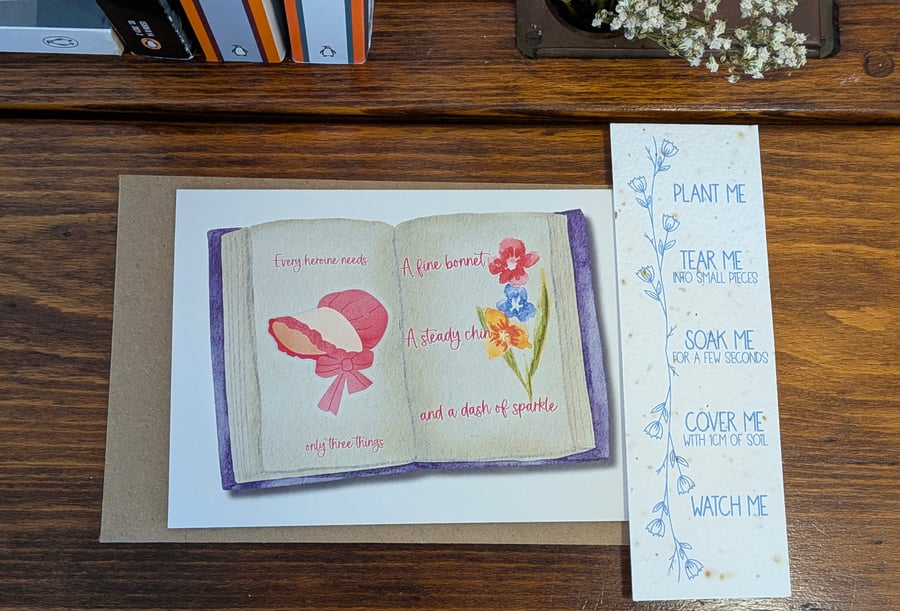 Every heroine needs
only three things
A fine bonnet
A steady chin
and a dash of sparkle
PLANT ME
TEAR ME
INTO SMALL PIECES
SOAK ME
FOR A FEW SECONDS
COVER ME
WITH 1CM OF SOIL
WATCH ME